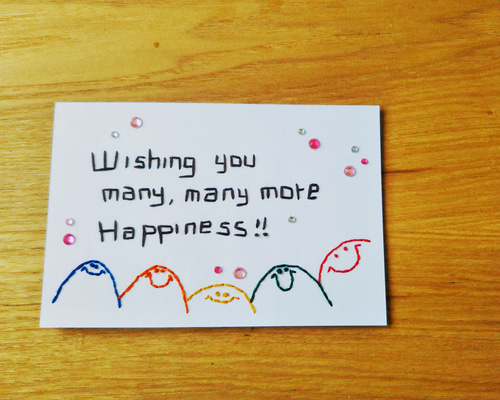 Wishing you
many, many more
Happiness!!